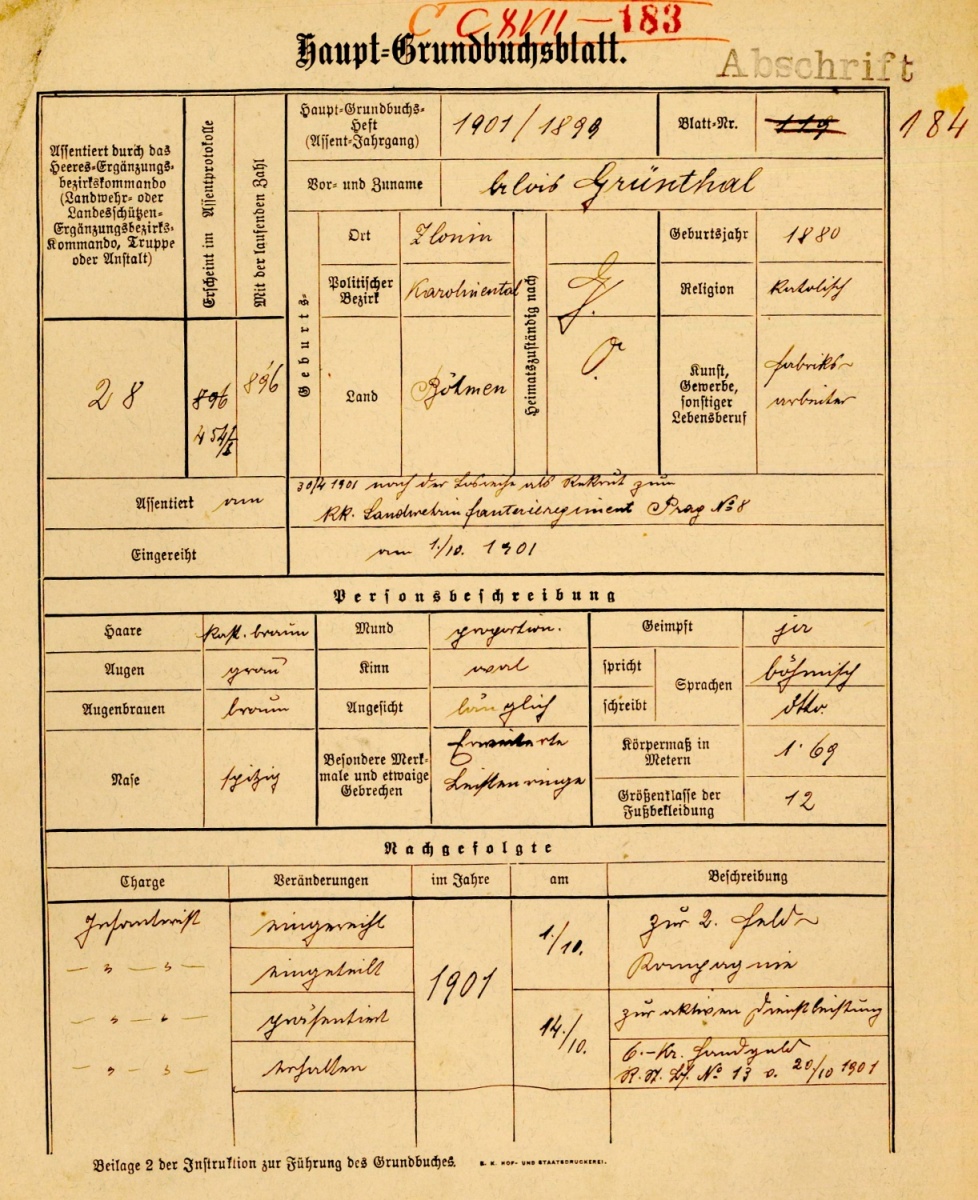 C CXVII-183
Haupt-Grundbuchsblatt.
Abschrift
Assentiert durch das
Heeres-Ergänzungs-
bezirkskommando
(Landwehr- oder
Landesschützen-
Ergänzungsbezirks-
Kommando, Truppe
oder Anstalt)
Erscheint im Assentprotokolle
Mit der laufenden Zahl
Haupt-Grundbuchs-
Heft
(Assent-Jahrgang)
1901/1899
Blatt-Nr.
119
184
Vor- und Zuname
Alois Grünthal
Geburts-
Ort
Zlonin
Politischer
Bezirk
Karolinental
Land
Böhmen
Heimatszuständig nach
G.
O.
Geburtsjahr
1880
Religion
katolisch
Kunst,
Gewerbe,
sonstiger
Lebensberuf
Fabriks-
arbeiter
28
896
454/
896
Assentiert
am
30/4 1901 nach der Losreihe als Rekrut zum
kk. Landwehrinfanterieregiment Prag No 8
Eingereiht
am 1./10. 1901
Personsbeschreibung
Haare
kast. braun
Mund
proportion.
Geimpft
ja
Augen
grau
Kinn
oval
spricht
Sprachen
böhmisch
Augenbrauen
braun
Angesicht
länglich
schreibt
dtto.
Nase
spitzig
Besondere Merk-
male und etwaige
Gebrechen
Erweiterte
Leistenringe
Körpermaß in
Metern
1·69
Größenklasse der
Fußbekleidung
12
Nachgefolgte
Charge
Veränderungen
im Jahre
am
Beschreibung
Infanterist
eingereiht
1901
1./10.
zur 2. Feld-
- " - " -
eingeteilt
Kompagnie
- " - " -
präsentiert
14./10.
zur aktiven Dienstleistung
- " - " -
erhalten
6.-Kr. Handgeld
R. St. Bl. No 13 v. 20/10 1901
Beilage 2 der Instruktion zur Führung des Grundbuches.
K. K. HOF- UND STAATSDRUCKEREI.